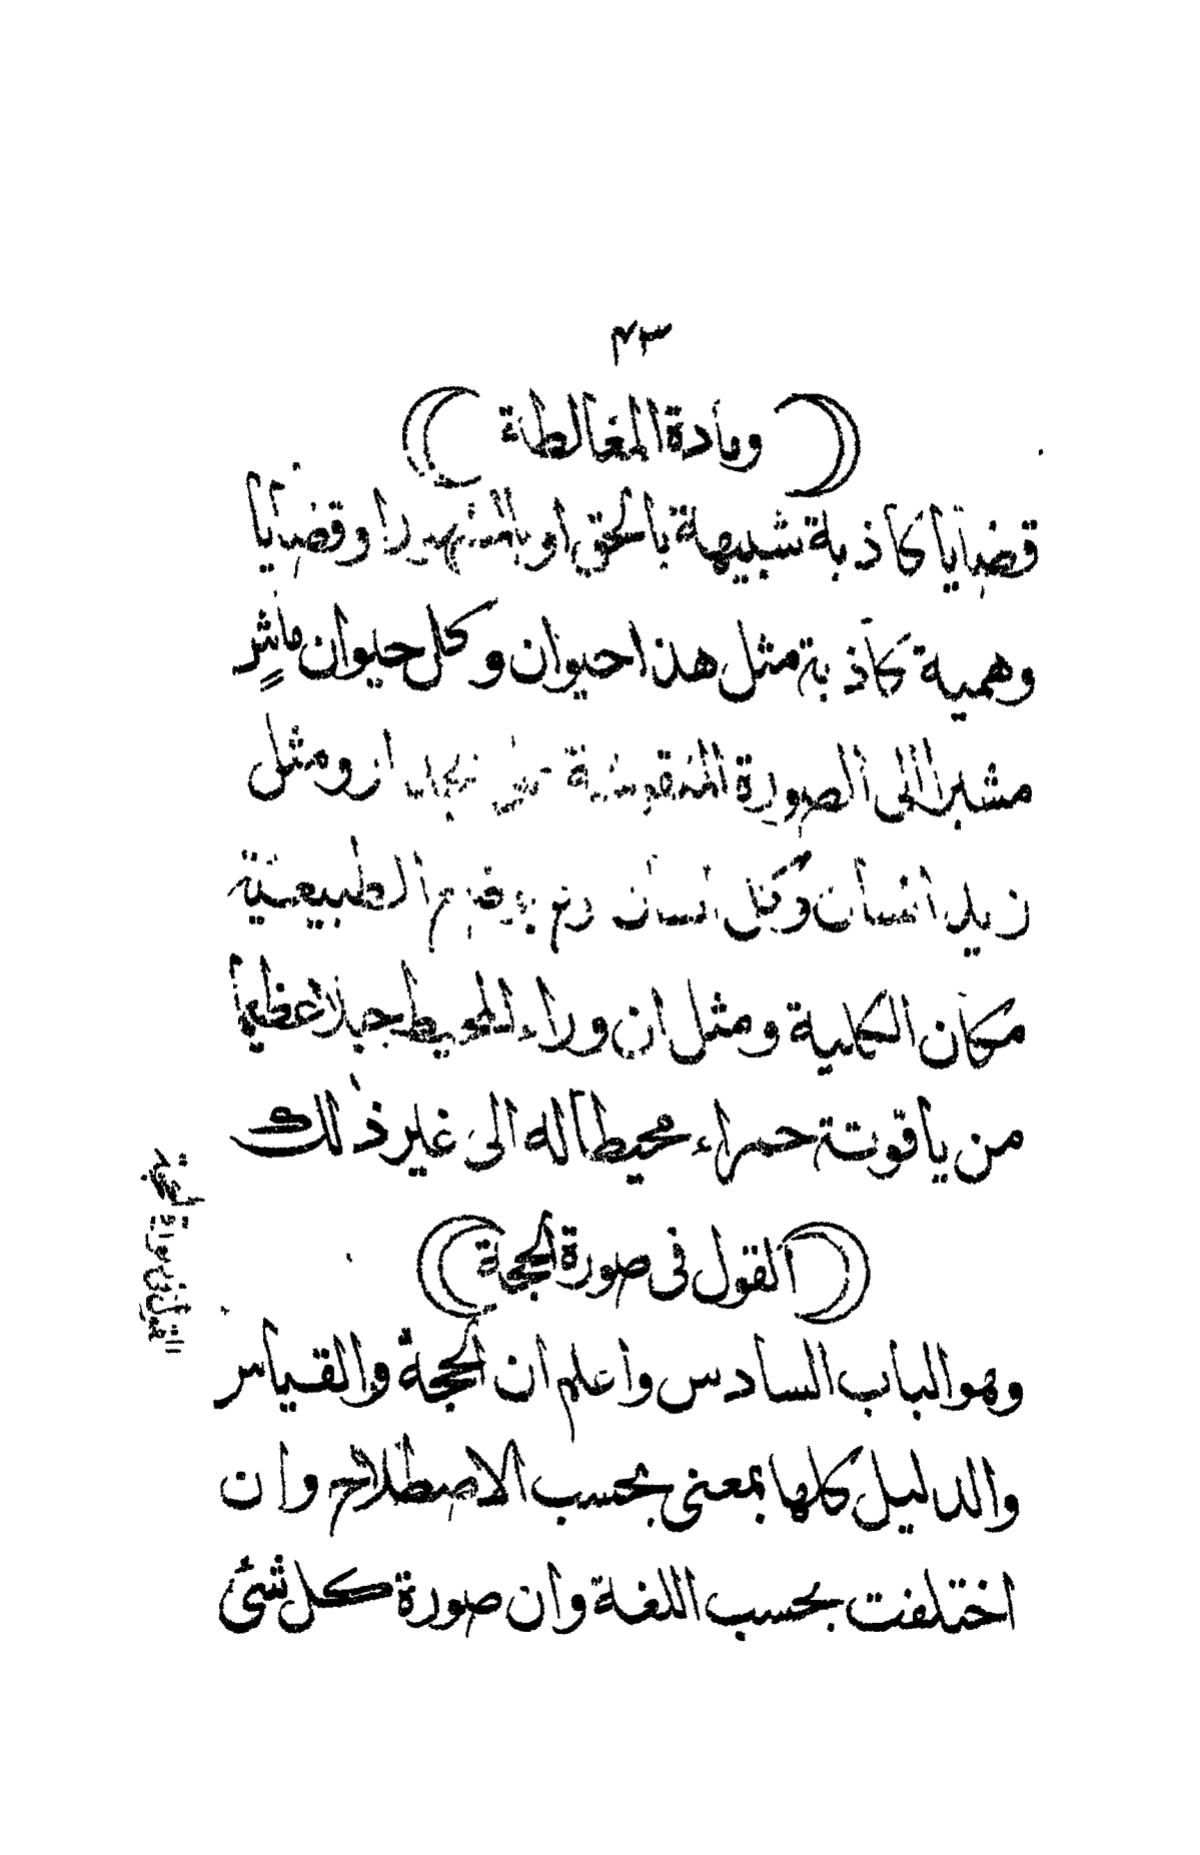 ٤٣
ومادة المغالطة
قضايا كاذبة شبيهة بالحق او بالمشهورا وقضايا
وهمية كاذبة مثل هذا حيوان وكل حيوان ماشٍ
مشيرا الى الصورة المنقوشة على جدار ومثل
زيد انسان وكل انسان نوع بوضع الطبيعية
مكان الكلية ومثل ان وراء المحيط جبلا عظيما
من ياقوتة حمراء محيطا له الى غير ذلك
القول فى صورة الحجة
وهو الباب السادس واعلم ان الحجة والقياس
والدليل كلها بمعنى بحسب الاصطلاح وان
اختلفت بحسب اللغة وان صورة كل شئ
القول فى صورة الحجة